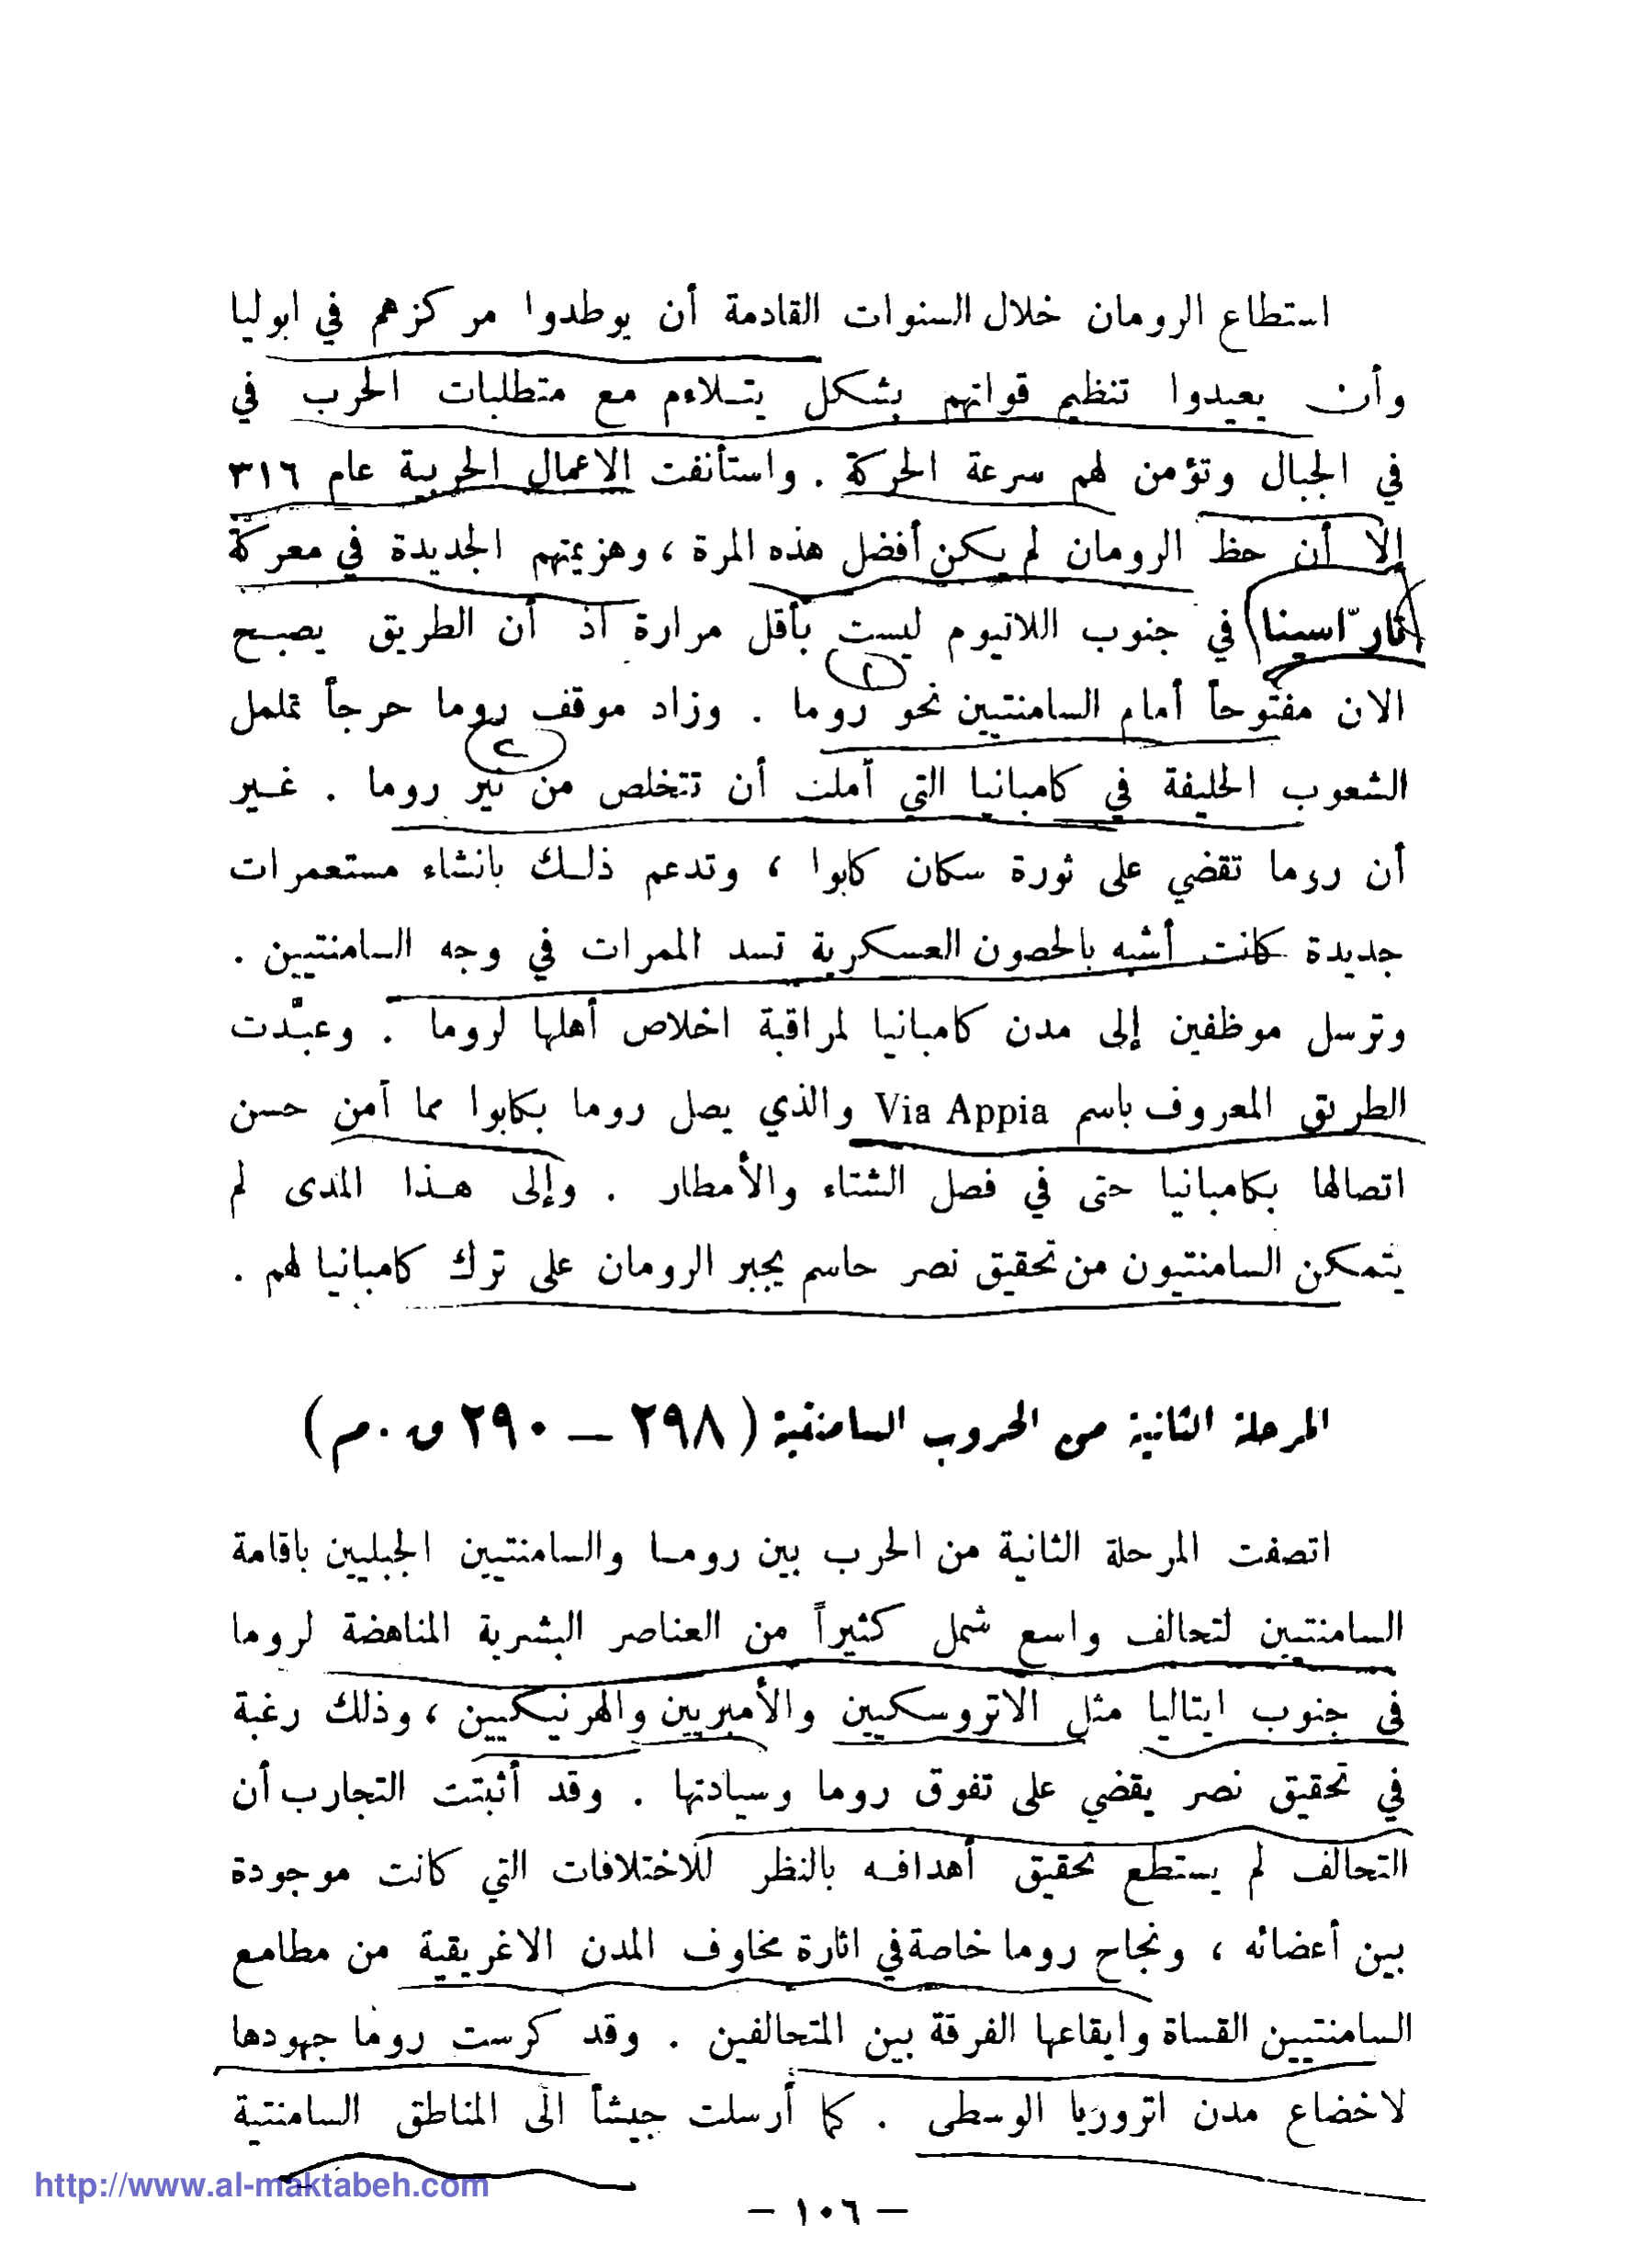 استطاع الرومان خلال السنوات القادمة أن يوطدوا مركزهم في ابوليا
وأن يعيدوا تنظيم قواتهم بشكل يتلاءم مع متطلبات الحرب في
في الجبال وتؤمن لهم سرعة الحركة . واستأنفت الاعمال الحربية عام ٣١٦
إلا أن حظ الرومان لم يكن أفضل هذه المرة ، وهزيمتهم الجديدة في معركة
تارّاسينا في جنوب اللاتيوم ليست بأقل مرارة اذ أن الطريق يصبح
الان مفتوحاً أمام السامنتيين نحو روما . وزاد موقف روما حرجاً تململ
الشعوب الحليفة في كامبانيا التي أملت أن تتخلص من نير روما . غير
أن روما تقضي على ثورة سكان كابوا ، وتدعم ذلك بانشاء مستعمرات
جديدة كانت أشبه بالحصون العسكرية تسد الممرات في وجه السامنتيين .
وترسل موظفين إلى مدن كامبانيا لمراقبة اخلاص أهلها لروما . وعبّدت
الطريق المعروف باسم Via Appia والذي يصل روما بكابوا مما أمن حسن
اتصالها بكامبانيا حتى في فصل الشتاء والأمطار . وإلى هذا المدى لم
يتمكن السامنتيون من تحقيق نصر حاسم يجبر الرومان على ترك كامبانيا لهم .
المرحلة الثانية من الحروب السامنتية ( ٢٩٨ — ٢٩٠ ق.م )
اتصفت المرحلة الثانية من الحرب بين روما والسامنتيين الجبليين باقامة
السامنتيين لتحالف واسع شمل كثيراً من العناصر البشرية المناهضة لروما
في جنوب ايتاليا مثل الاتروسكيين والأمبريين والهرنيكيين ، وذلك رغبة
في تحقيق نصر يقضي على تفوق روما وسيادتها . وقد أثبتت التجارب أن
التحالف لم يستطع تحقيق أهدافه بالنظر للاختلافات التي كانت موجودة
بين أعضائه ، ونجاح روما خاصة في اثارة مخاوف المدن الاغريقية من مطامع
السامنتيين القساة وايقاعها الفرقة بين المتحالفين . وقد كرست روما جهودها
لاخضاع مدن اتروريا الوسطى . كما أرسلت جيشاً الى المناطق السامنتية
http://www.al-maktabeh.com
— ١٠٦ —